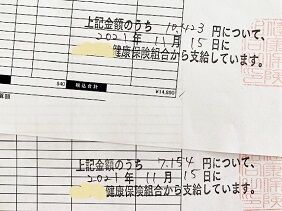 上記金額のうち 10,423 円について、
2021年 11月 15日に
健康保険組合から支給しています。
540 税込合計 ¥14,890
上記金額のうち 7,154 円について、
2021年 11月 15日に
健康保険組合から支給しています。